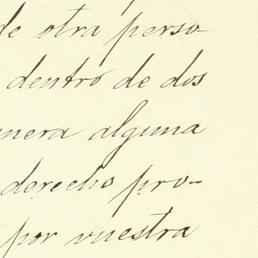 de otra perso
dentro de dos
nera alguna
derecho pro-
por vuestra